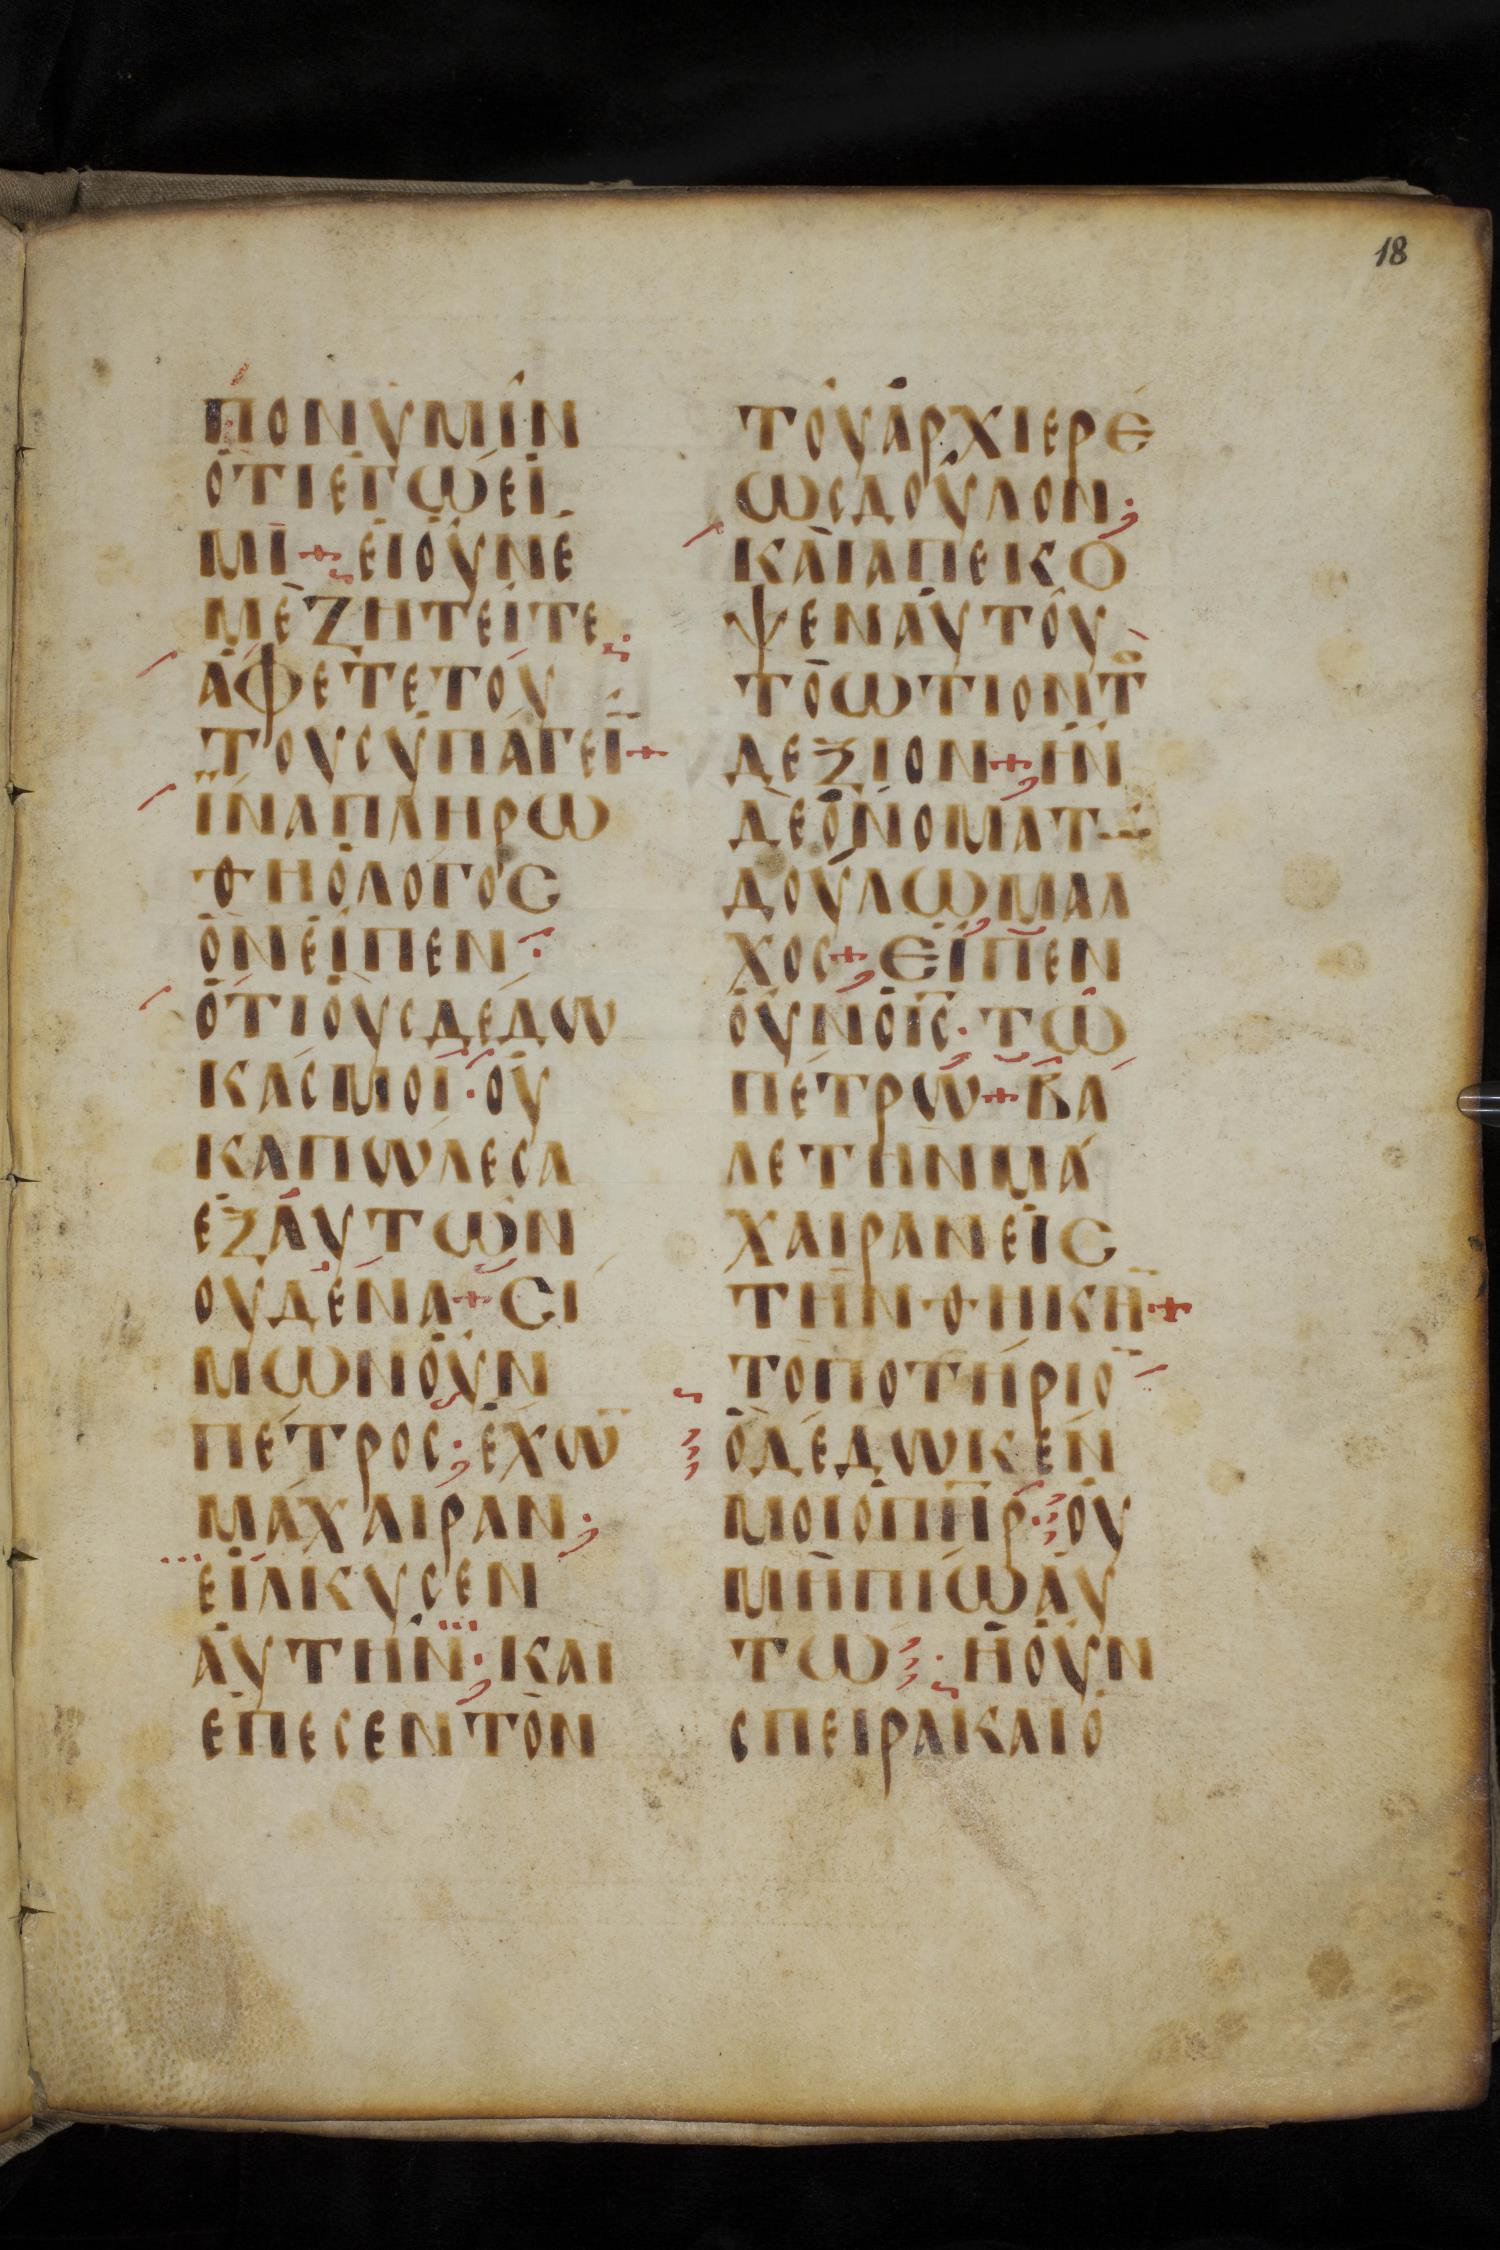 18
ΠΟΝΥΜΙ͂Ν
ὍΤΙΕΓΩΕΙ
ΜΙ + ΕΙΟΥΝΕ
ΜΕΖΗΤΕΙΤΕ
ΑΦΕΤΕΤΟΥ
ΤΟΥΣΥΠΑΓΕῙ +
ΪΝΑΠΛΗΡΩ
ΘΗΟΛΟΓΟC
ΟΝΕΙΠΕΝ ·
ΟΤΙΟΥCΔΕΔΩ
ΚΑCΜΟΙ · ΟΥ
ΚΑΠΩΛΕCΑ
ΕΞΑΥΤΩΝ
ΟΥΔΕΝΑ + CΙ
ΜΩΝΟΥΝ
ΠΕΤΡΟC · ΕΧΩ̄
ΜΑΧΑΙΡΑΝ ·
ΕΙΛΚΥCΕΝ
ΑΥΤΗΝ · ΚΑΙ
ΕΠΕCΕΝΤΟΝ
ΤΟΥΑΡΧΙΕΡΕ
ΩCΔΟΥΛΟΝ ·
ΚΑΙΑΠΕΚΟ
ΨΕΝΑΥΤΟΥ
ΤΟΩΤΙΟΝΤͦ
ΔΕΞΙΟΝ + ΗΝ
ΔΕΟΝΟΜΑΤ
ΔΟΥΛΩΜΑΛ
ΧΟC + ΕΙΠΕΝ
ΟΥΝΟΙ̅C̅ · ΤΩ
ΠΕΤΡΩ + ΒΑ
ΛΕΤΗΝΜΑ
ΧΑΙΡΑΝΕΙC
ΤΗΝΘΗΚΗ̄ +
ΤΟΠΟΤΗΡΙΟ̄
ΟΔΕΔΩΚΕΝ
ΜΟΙΟΠ̅Η̅Ρ̅ · ΟΥ
ΜΗΠΙΩΑΥ
ΤΩ · ΗΟΥΝ
CΠΕΙΡΑΚΑΙΟ